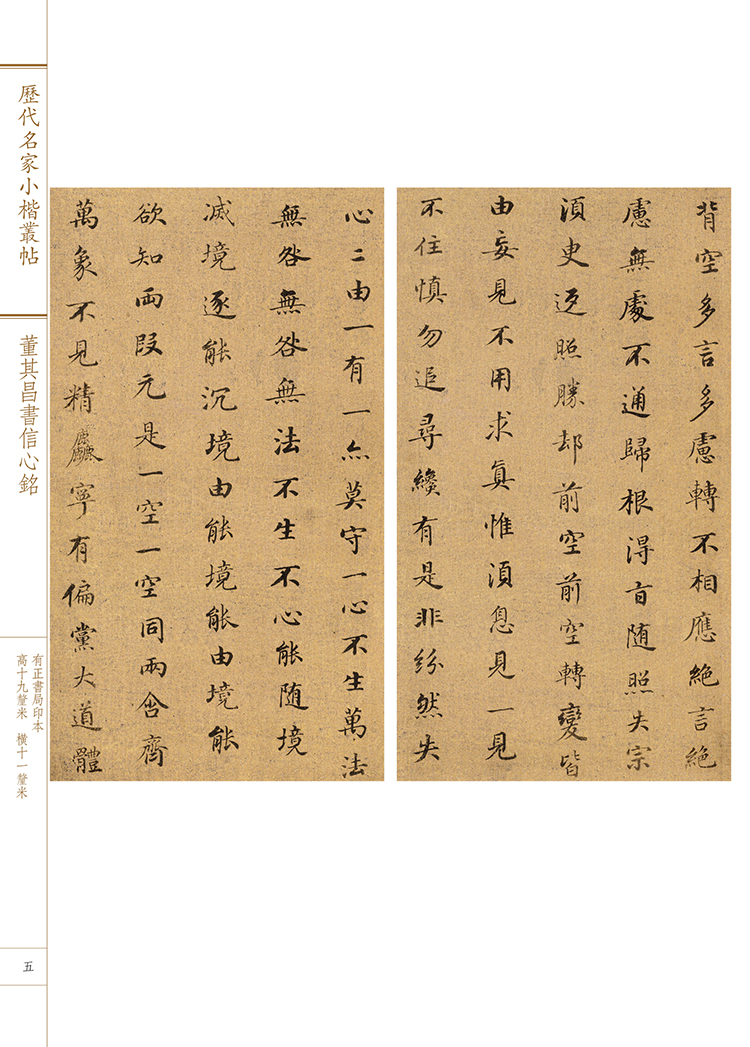 背空多言多慮轉不相應絶言絶
慮無處不通歸根得旨随照失宗
須臾返照勝却前空前空轉變皆
由妄見不用求真惟須息見一見
不住慎勿追尋纔有是非紛然失
心二由一有一亦莫守一心不生萬法
無咎無咎無法不生不心能随境
滅境逐能沉境由能境能由境能
欲知兩段元是一空一空同兩含齊
萬象不見精麤寧有偏黨大道體
歷代名家小楷叢帖
董其昌書信心銘
有正書局印本
高十九釐米 橫十一釐米
五